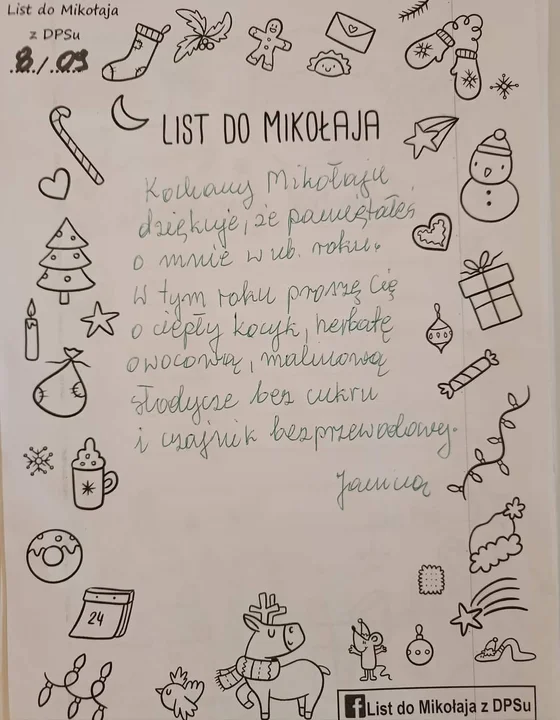 List do Mikołaja
z DPSu
8/.09
LIST DO MIKOŁAJA
Kochany Mikołaju
dziękuję, że pamiętałeś
o mnie w ub. roku.
W tym roku proszę Cię
o ciepły kocyk, herbatę
owocową, malinową
słodycze bez cukru
i czajnik bezprzewodowy.
Janina
24
List do Mikołaja z DPSu